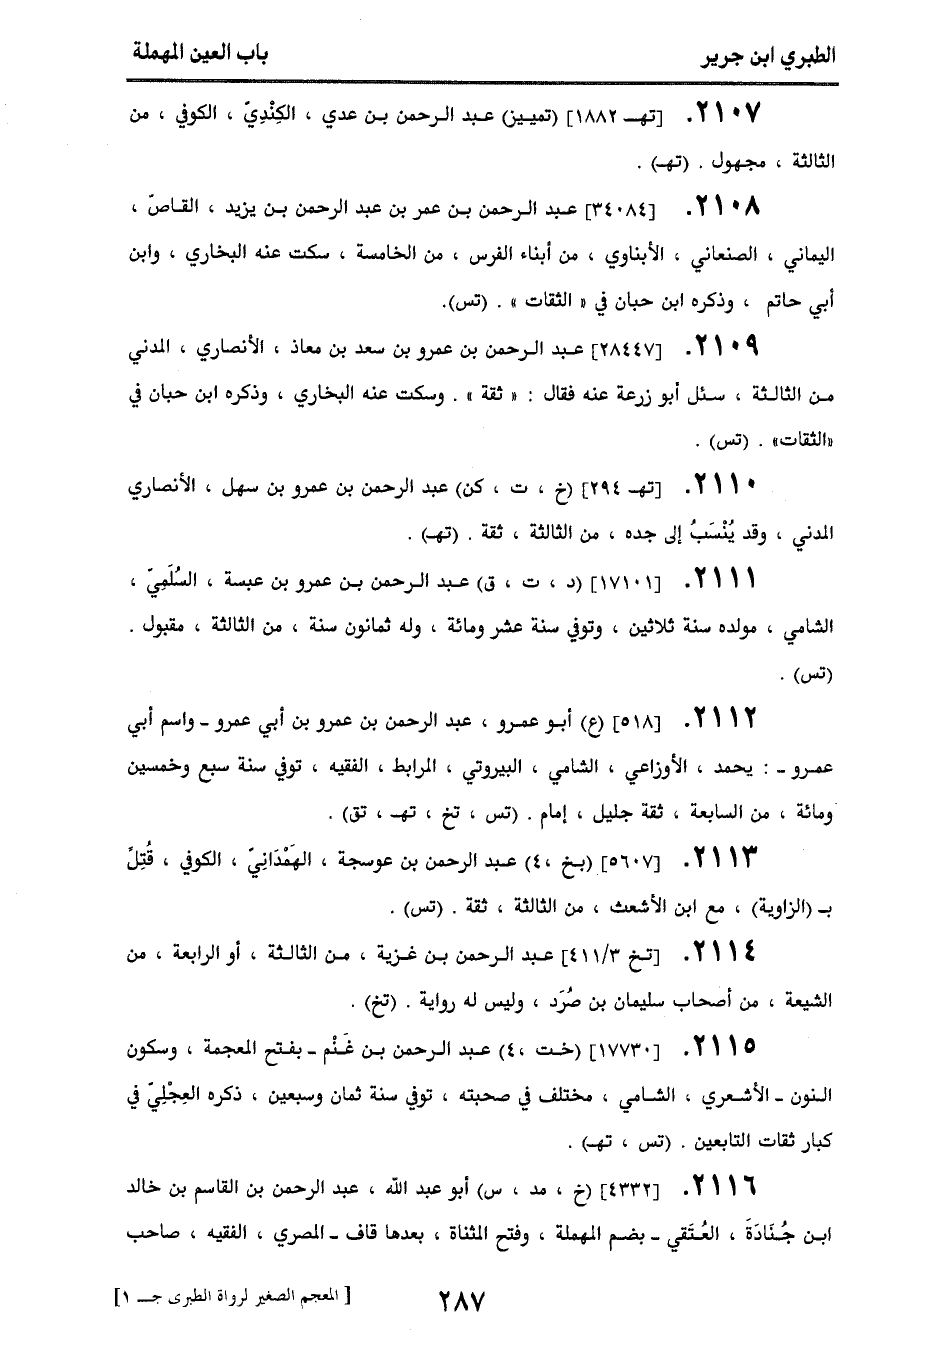 الطبري ابن جرير باب العين المهملة
٢١٠٧. [تهـ ١٨٨٢] (تمييز) عبد الرحمن بن عدي ، الكِنْدِيّ ، الكوفي ، من
الثالثة ، مجهول . (تهـ) .
٢١٠٨. [٣٤٠٨٤] عبد الرحمن بن عمر بن عبد الرحمن بن يزيد ، القاصّ ،
اليماني ، الصنعاني ، الأبناوي ، من أبناء الفرس ، من الخامسة ، سكت عنه البخاري ، وابن
أبي حاتم ، وذكره ابن حبان في « الثقات » . (تس).
٢١٠٩. [٢٨٤٤٧] عبد الرحمن بن عمرو بن سعد بن معاذ ، الأنصاري ، المدني
من الثالثة ، سئل أبو زرعة عنه فقال : « ثقة » . وسكت عنه البخاري ، وذكره ابن حبان في
«الثقات» . (تس) .
٢١١٠. [تهـ ٢٩٤] (خ ، ت ، كن) عبد الرحمن بن عمرو بن سهل ، الأنصاري
المدني ، وقد يُنْسَبُ إلى جده ، من الثالثة ، ثقة . (تهـ) .
٢١١١. [١٧١٠١] (د ، ت ، ق) عبد الرحمن بن عمرو بن عبسة ، السُلَمِيّ ،
الشامي ، مولده سنة ثلاثين ، وتوفي سنة عشر ومائة ، وله ثمانون سنة ، من الثالثة ، مقبول .
(تس) .
٢١١٢. [٥١٨] (ع) أبو عمرو ، عبد الرحمن بن عمرو بن أبي عمرو ـ واسم أبي
عمرو ـ : يحمد ، الأوزاعي ، الشامي ، البيروتي ، المرابط ، الفقيه ، توفي سنة سبع وخمسين
ومائة ، من السابعة ، ثقة جليل ، إمام . (تس ، تخ ، تهـ ، تق) .
٢١١٣. [٥٦٠٧] (بخ ،٤) عبد الرحمن بن عوسجة ، الهَمْدَانِيّ ، الكوفي ، قُتِلَ
بـ (الزاوية) ، مع ابن الأشعث ، من الثالثة ، ثقة . (تس) .
٢١١٤. [تخ ٤١١/٣] عبد الرحمن بن غزية ، من الثالثة ، أو الرابعة ، من
الشيعة ، من أصحاب سليمان بن صُرَد ، وليس له رواية . (تخ) .
٢١١٥. [١٧٧٣٠] (خت ،٤) عبد الرحمن بن غَنْم ـ بفتح المعجمة ، وسكون
النون ـ الأشعري ، الشامي ، مختلف في صحبته ، توفي سنة ثمان وسبعين ، ذكره العِجْلِيّ في
كبار ثقات التابعين . (تس ، تهـ) .
٢١١٦. [٤٣٣٢] (خ ، مد ، س) أبو عبد الله ، عبد الرحمن بن القاسم بن خالد
ابن جُنَادَةَ ، العُتَقي ـ بضم المهملة ، وفتح المثناة ، بعدها قاف ـ المصري ، الفقيه ، صاحب
٢٨٧ [ المعجم الصغير لرواة الطبرى جـ ١]